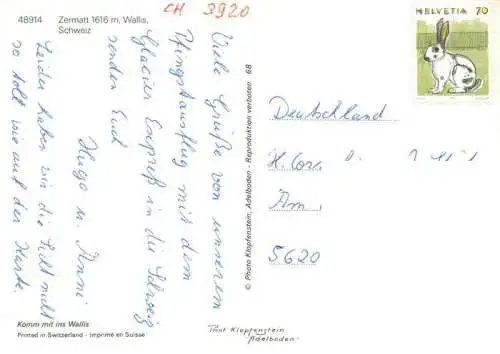 48914 Zermatt 1616 m, Wallis,
Schweiz
CH 3920
HELVETIA 70
Viele Grüße von unserem
Pfingstausflug mit dem
Glacier Express in die Schweiz
senden Euch
Hugo u. Anni
Leider haben wir die Sicht nicht
so toll wie auf der Karte.
© Photo Klopfenstein, Adelboden - Reproduktion verboten 68
Deutschland
5620
Komm mit ins Wallis
Printed in Switzerland - Imprimé en Suisse
Phot Klopfenstein
Adelboden